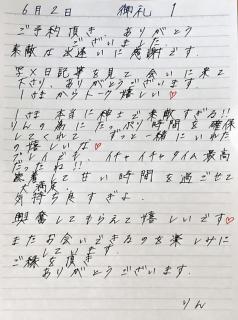 6月2日 御礼 1
ご予約頂き ありがとう
ございました
素敵な出逢いに感謝です.
写メ日記等を見て会いに来て
下さり、ありがとうございます
1さまからトーク嬉しい♡
1さま 本当に神士で素敵すぎる!!
りんの為にたっぷり時間を確保
してくれて ずっと一緒にいれた
の嬉しいな♡
プレイでも、イチャイチャタイム最高
だったね!!
して甘い時間を過ごせて
大満足.
気持ち良すぎよ.
興奮してもらえて嬉しいです♡
またお会いできるのを楽しみに
しています.
ご縁を頂き
ありがとうございます.
りん